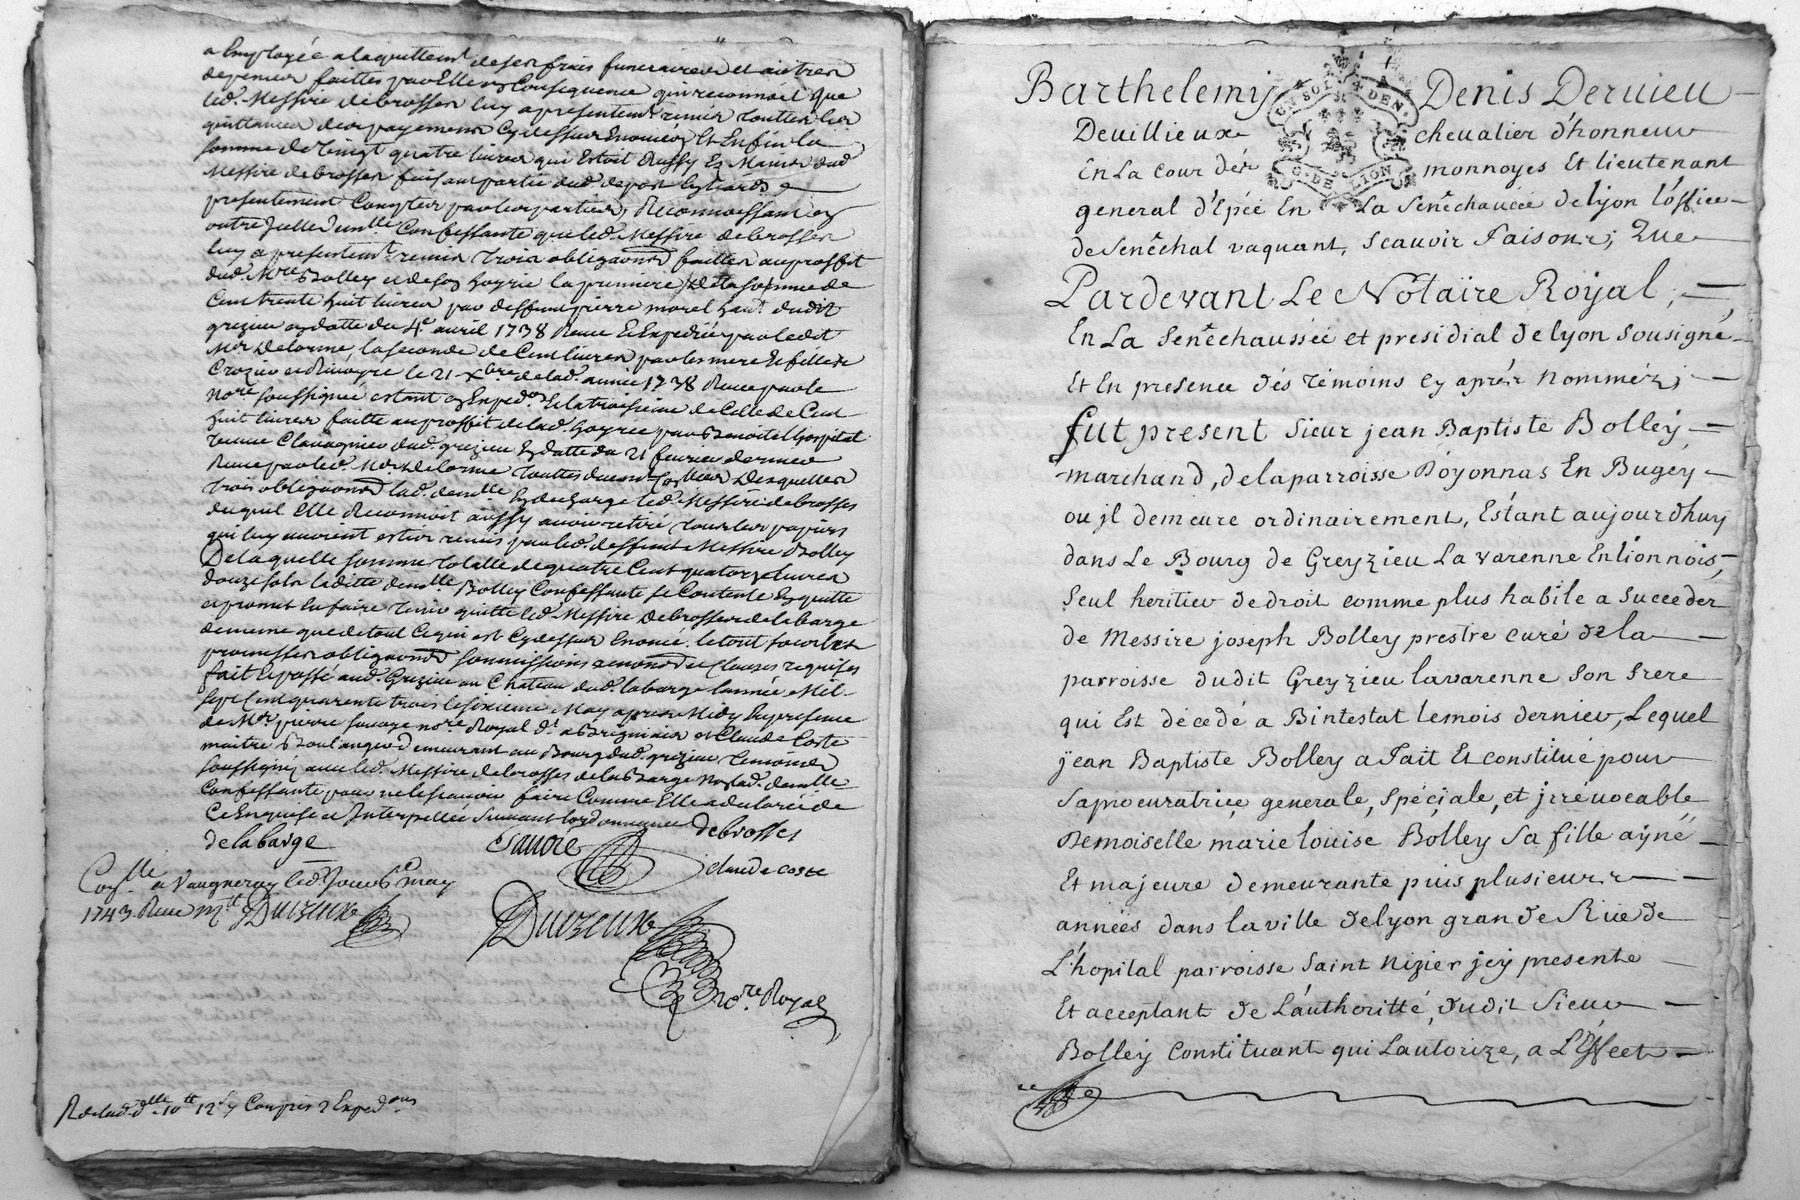 a Employée a laquittem.t deses frais funeraires et autres
depences faittes par Elle en Consequence qui reconnoit que
led. Messire debrosses luy a presentem.t remis touttes les
quittances des payemens Cydessus Enoncés Et Enfin la
somme de vingt quatre livres qui Estoit Aussy Es Mains dud
Messire debrosses faisant partie dud depost
presentement Compter par les parties, Reconnoissant
outre Jcelle dem.lle Confessante que led. Messire debrosses
luy a presentem.t remis trois obligaons faittes au proffit
dud. M.re Bolley et de la premiere de la somme de
Cent trente huit livres par deffunt pierre morel dudit
grezieu en datte du 4.e avril 1738 Receue Et Expediée par ledit
M.re Delorme, la seconde de Cent livres par les mere et fille
Crozier le 21 Xbre de lad. année 1738 Receue par le
No.re soussignée estant en Exped.on Et la troisieme de Celle de Cent
huit livres faitte au proffit de lad. par Benoite hospital
veuve Clavagnier dud. grezieu En datte du 21 fevrier dernier
Receue par led. M.re Delorme touttes Desquelles
trois obligaons lad. dem.lle En decharge led. Messire debrosses
duquel Elle Reconnoit aussy avoir retiré tous les papiers
qui luy avoient estés remis par led. deffunt Messire Bolley
De laquelle somme totalle de quatre Cent quatorze livres
douze sols laditte dem.lle Bolley Confessante se Contente En quitte
et promet En faire tenir quitte led. Messire Debrosses de la barge
de meme que de tout Ce qui est Cydessus Enoncé. le tout sous les
promesses obligaons soumissions renonc. Clauses requises
fait Et passé aud. Grezieu au Chateau dud. labarge l'année Mil-
sept Cent quarente trois le sixieme May apres Midy En presence
de M.re pierre savoye no.re Royal d.t a Brignais et Claude Coste
maitre Boulanger demeurant au Bourg dud. grezieu temoins
soussignés avec led. Messire debrosses de la Barge Non lad. dem.lle
Confessante pour ne le scavoir faire Comme Elle a declarée de
Ce Enquise et Interpellée suivant l'ordonnance debrosses
de la barge
claude coste
Con.lle a Vaugneray led. Jour 6.e may
1743. Receu Duizeux
Duizeux
No.re Royal
R de lad. d.lle 10.tt 12.s y Compris 2 Exped.ons
Barthelemy Denis Dervieu
EN SOL. DEN.
Devillieux chevalier d'honneur
En La cour dés monnoyes Et lieutenant
G. DE LION
general d'Epée En La Senéchaucée de lyon l'office
de Senéchal vaquant, scauoir faisons; Que
Pardevant Le Notaire Royal,
En La Senéchaussée et presidial de lyon sousigné
Et En presence dés témoins cy aprés nommés;
fut present Sieur jean Baptiste Bolley
marchand, de la parroisse D'oyonnas En Bugéy
ou jl demeure ordinairement, Estant aujourdhuy
dans Le Bourg de Greyzieu La varenne En lionnois,
Seul heritier de droit comme plus habile a succeder
de Messire joseph Bolley prestre curé de la
parroisse dudit Greyzieu lavarenne Son frere
qui Est décedé aBintestat le mois dernier, Lequel
jean Baptiste Bolley a fait Et constitué pour
Saprocuratrice generale, spéçiale, et jrrévocable
Demoiselle marie louise Bolley Sa fille aÿné
Et majeure demeurante puis plusieurs
années dans la ville de lyon grande Rüe de
L'hopital parroisse Saint Nizier jcy presente
Et acceptant de L'authoritté, dudit Sieur
Bolley Constituant qui Lautorize, a L'Effect